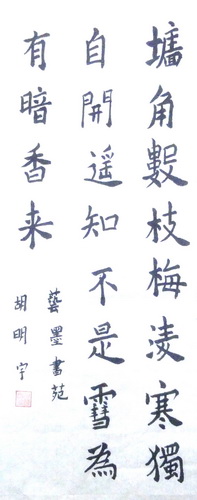 墻角數枝梅凌寒獨
自開遥知不是雪為
有暗香来
藝墨書苑
胡明宇